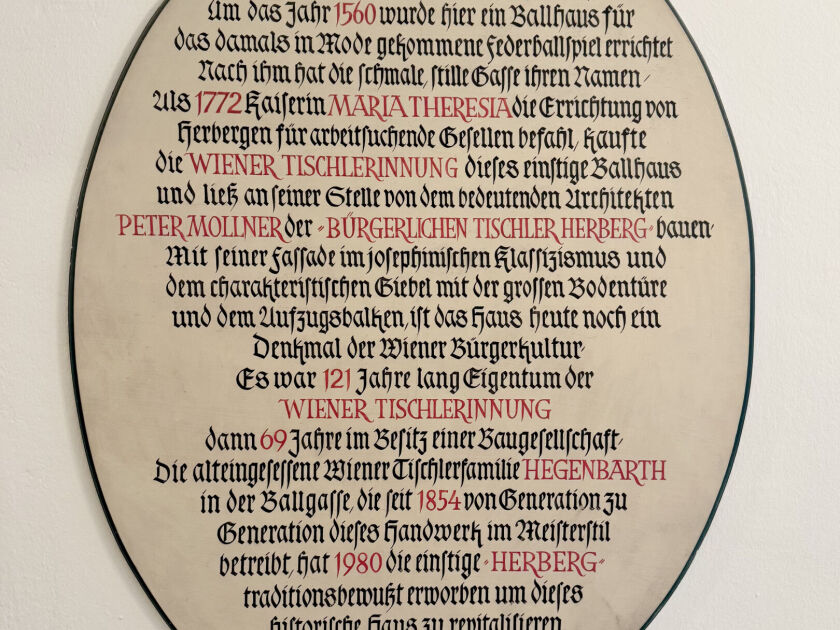 Um das Jahr 1560 wurde hier ein Ballhaus für
das damals in Mode gekommene Federballspiel errichtet
Nach ihm hat die schmale, stille Gasse ihren Namen/
Als 1772 Kaiserin MARIA THERESIA die Errichtung von
Herbergen für arbeitsuchende Gesellen befahl, kaufte
die WIENER TISCHLERINNUNG dieses einstige Ballhaus
und ließ an seiner Stelle von dem bedeutenden Architekten
PETER MOLLNER der "BÜRGERLICHEN TISCHLER HERBERG" bauen
Mit seiner Fassade im josephinischen Klassizismus und
dem charakteristischen Giebel mit der grossen Bodentüre
und dem Aufzugsbalken, ist das Haus heute noch ein
Denkmal der Wiener Bürgerkultur
Es war 121 Jahre lang Eigentum der
WIENER TISCHLERINNUNG
dann 69 Jahre im Besitz einer Baugesellschaft/
Die alteingesessene Wiener Tischlerfamilie HEGENBARTH
in der Ballgasse, die seit 1854 von Generation zu
Generation dieses Handwerk im Meisterstil
betreibt, hat 1980 die einstige "HERBERG"
traditionsbewußt erworben um dieses
historische Haus zu revitalisieren